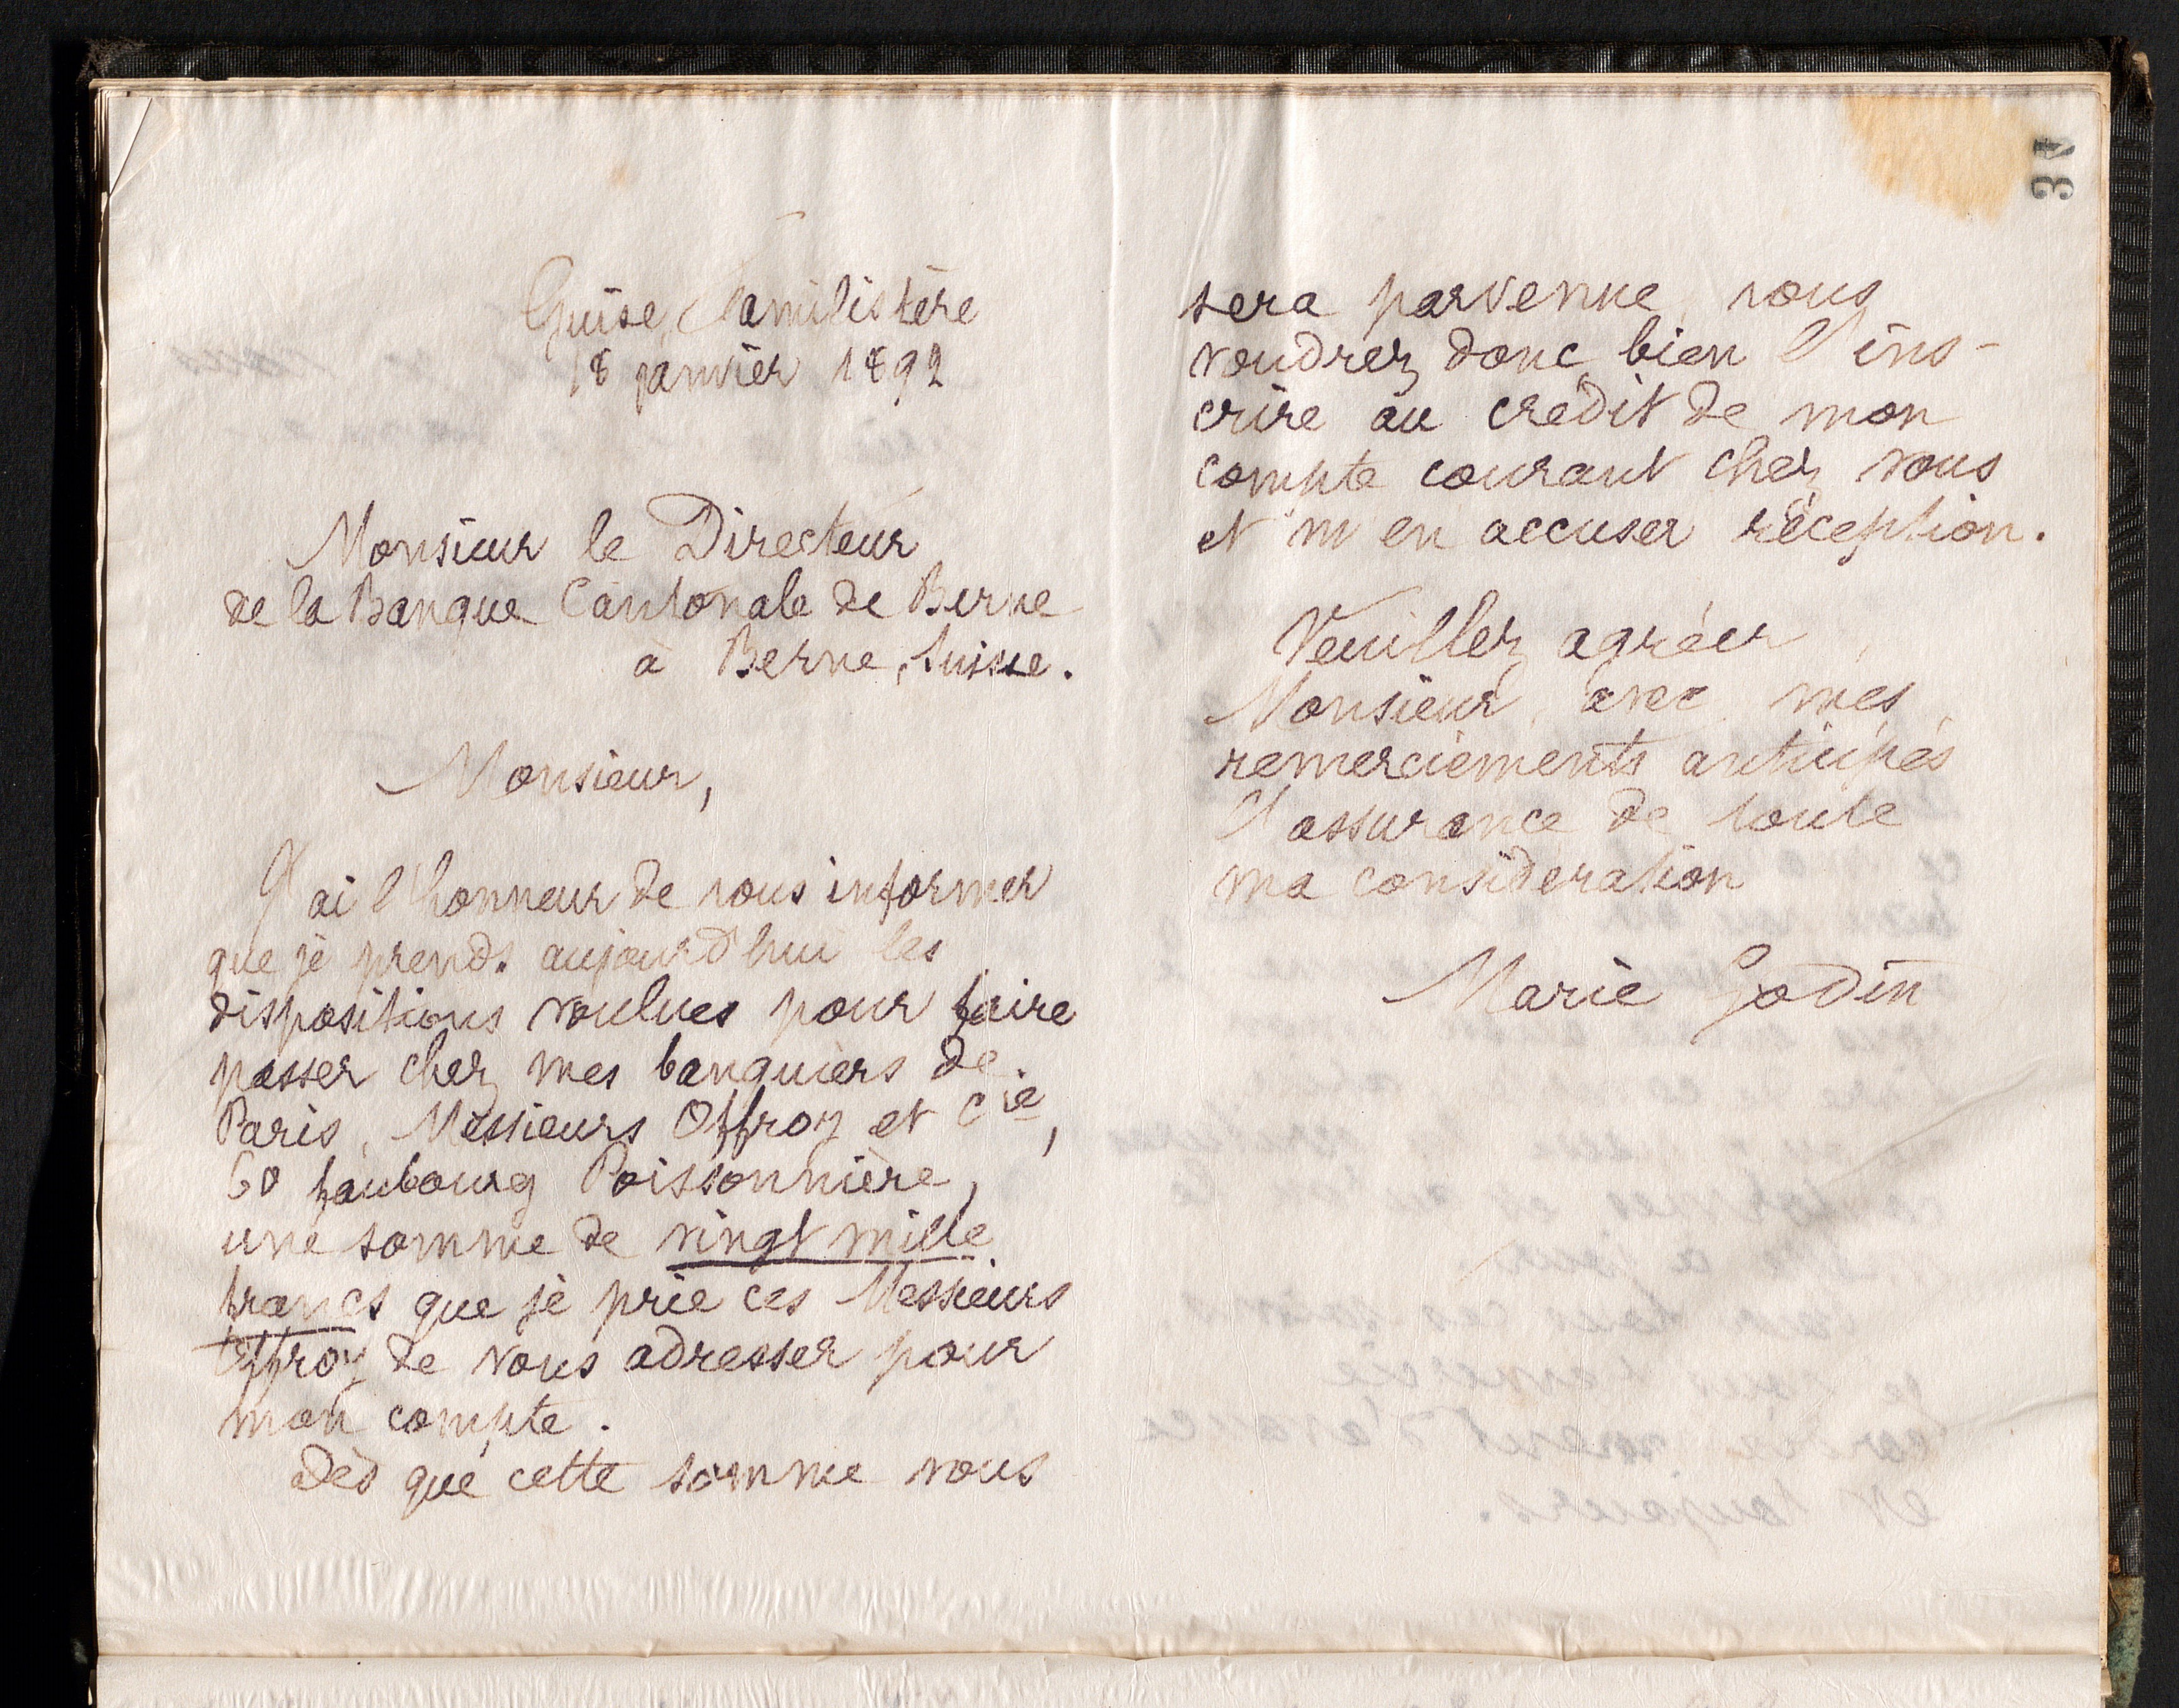 Guise, Familistère
18 janvier 1892
Monsieur le Directeur
de la Banque Cantonale de Berne
à Berne, Suisse.
Monsieur,
J'ai l'honneur de vous informer
que je prends aujourd'hui les
dispositions voulues pour faire
passer chez mes banquiers de
Paris, Messieurs Offroy et Cie,
60 faubourg Poissonnière,
une somme de vingt mille
francs que je prie ces Messieurs
Offroy de vous adresser pour
mon compte.
Dès que cette somme vous
sera parvenue, vous
voudrez donc bien l'ins-
crire au crédit de mon
compte courant chez vous
et m'en accuser réception.
Veuillez agréer,
Monsieur, avec mes
remerciements anticipés
l'assurance de toute
ma considération
Marie Godin